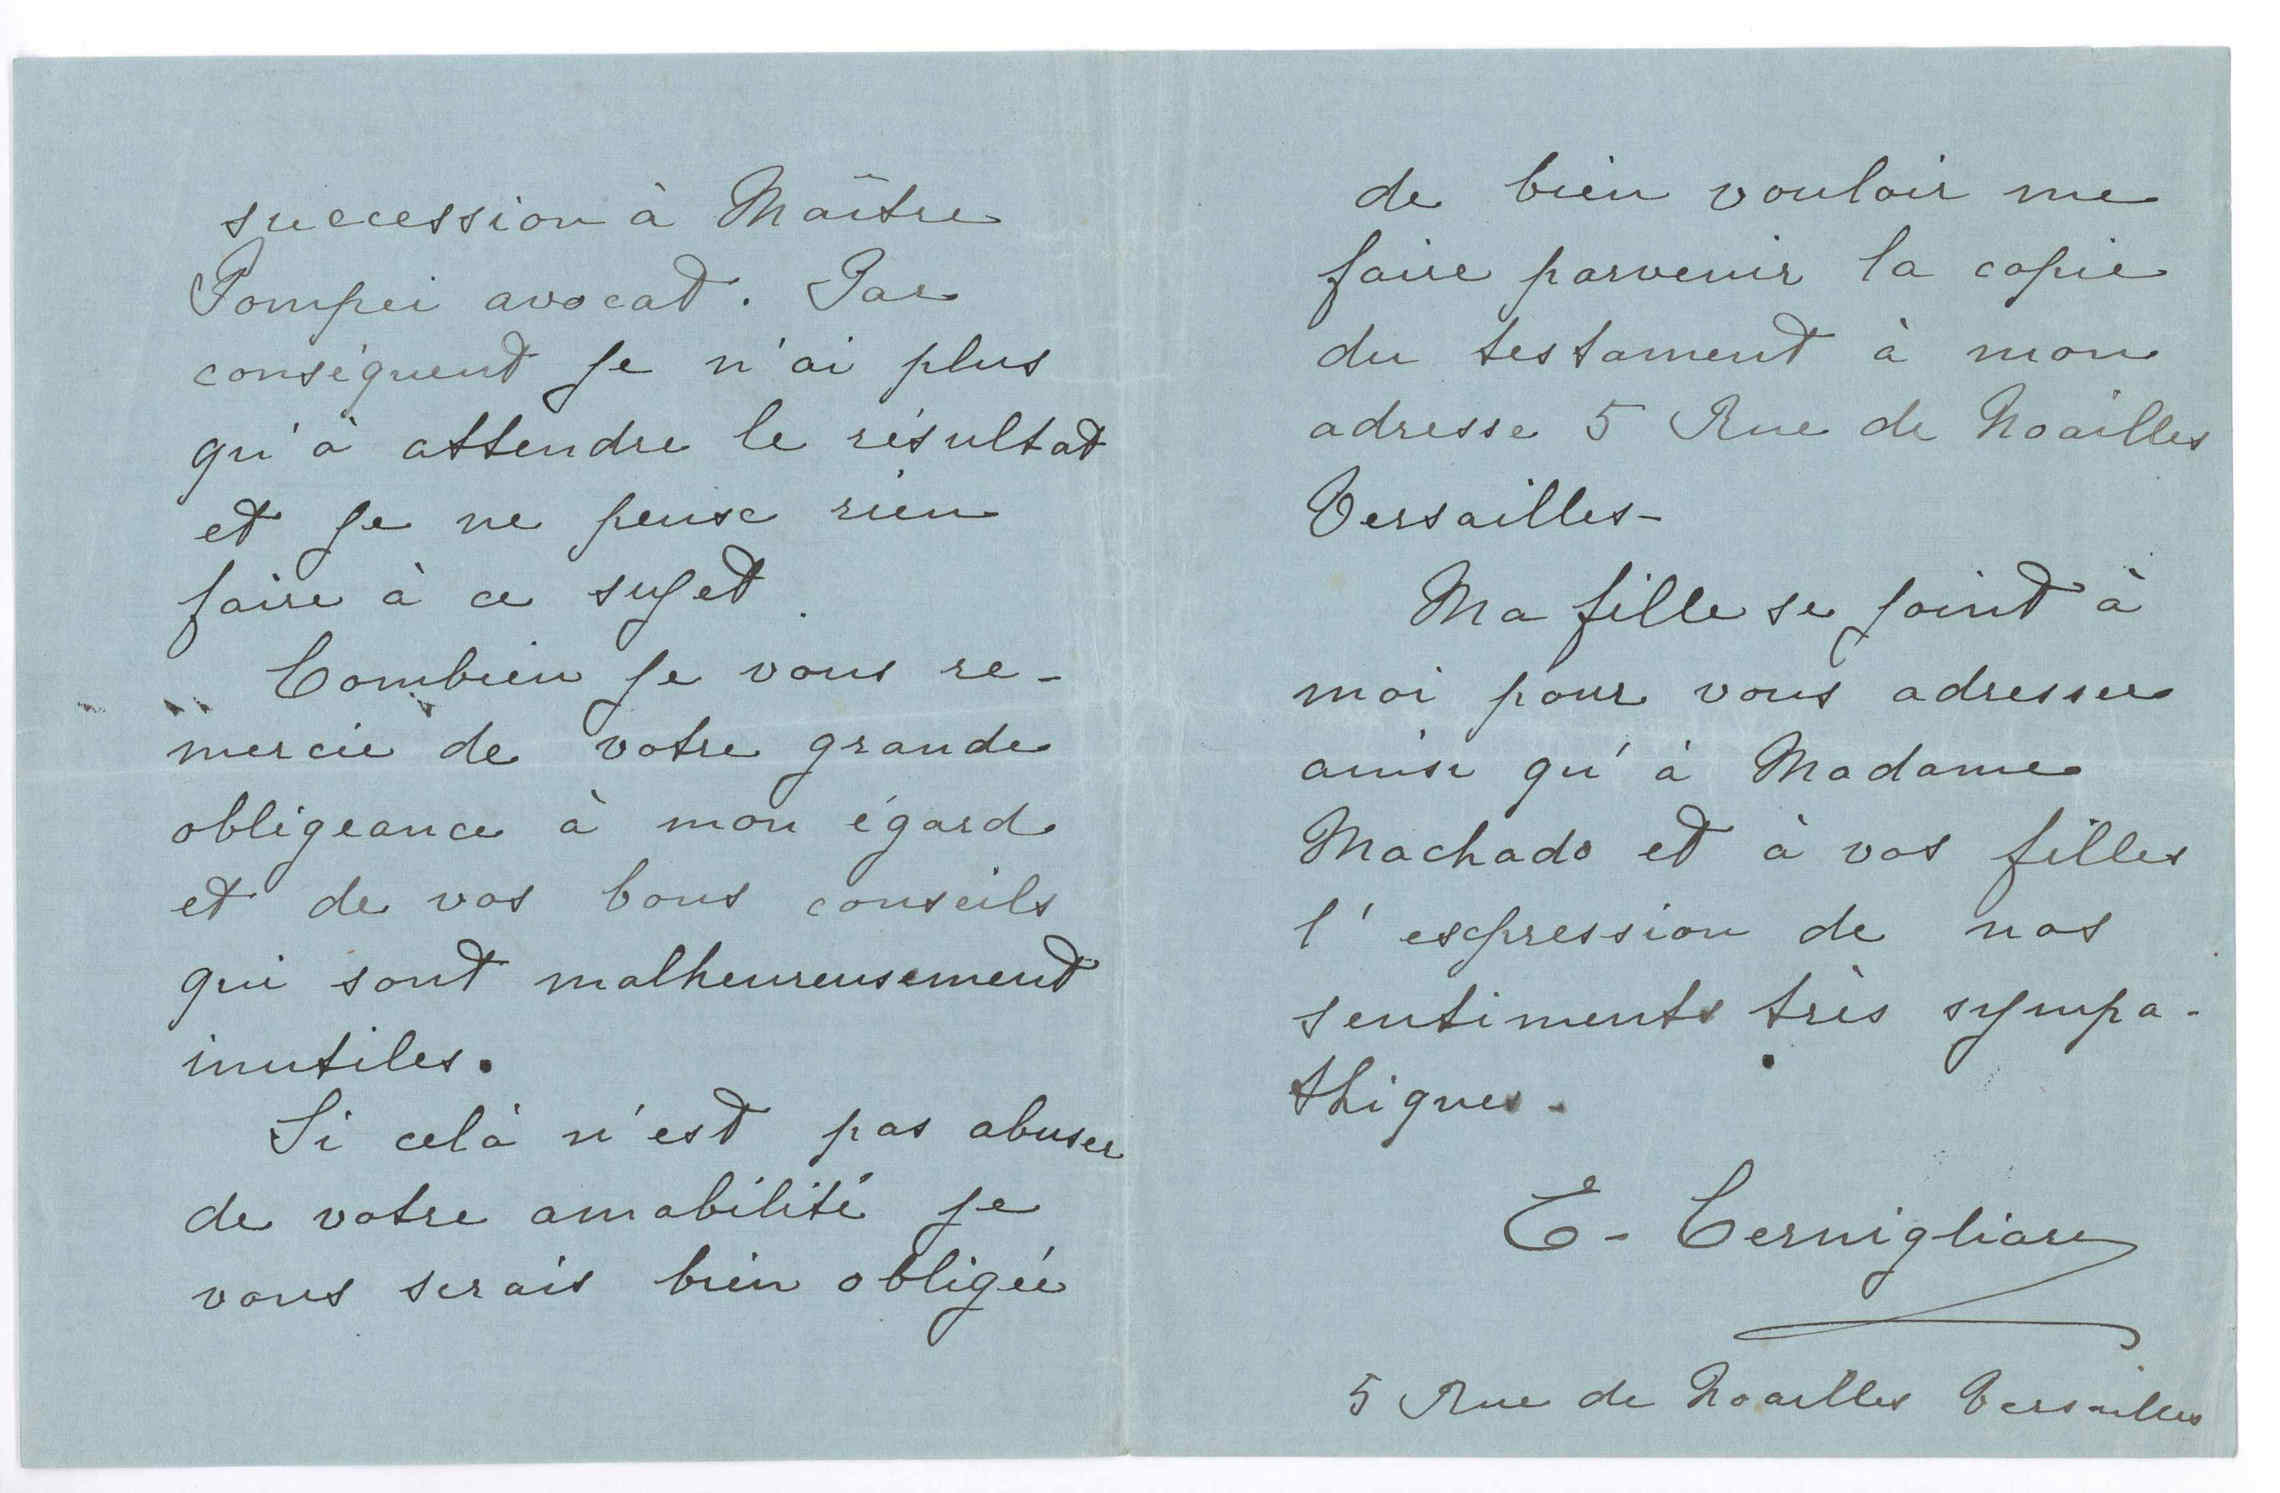 succession à Maître
Pompei avocat. Par
conséquent je n'ai plus
qu'à attendre le résultat
et je ne pense rien
faire à ce sujet.
Combien je vous re-
mercie de votre grande
obligeance à mon égard
et de vos bons conseils
qui sont malheureusement
inutiles.
Si celà n'est pas abuser
de votre amabilité je
vous serais bien obligée
de bien vouloir me
faire parvenir la copie
du testament à mon
adresse 5 Rue de Noailles
Versailles-
Ma fille se joint à
moi pour vous adresser
ainsi qu'à Madame
Machado et à vos filles
l'expression de nos
sentiments très sympa-
thiques-
E- Cernigliare
5 Rue de Noailles Versailles